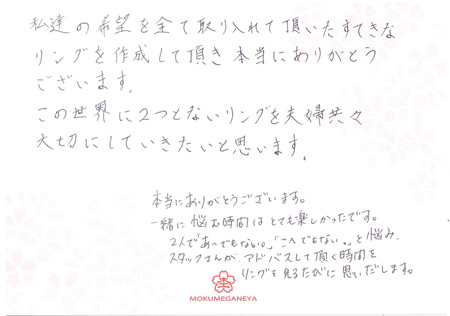 私達の希望を全て取り入れて頂いたすてきな
リングを作成して頂き本当にありがとう
ございます。
この世界に2つとないリングを夫婦共々
大切にしていきたいと思います。
本当にありがとうございます。
一緒に悩む時間はとても楽しかったです。
2人で「あ〜でもない。」「こ〜でもない。」と悩み、
スタッフさんが、アドバスして頂く時間を
リングを見るたびに思いだします。
MOKUMEGANEYA